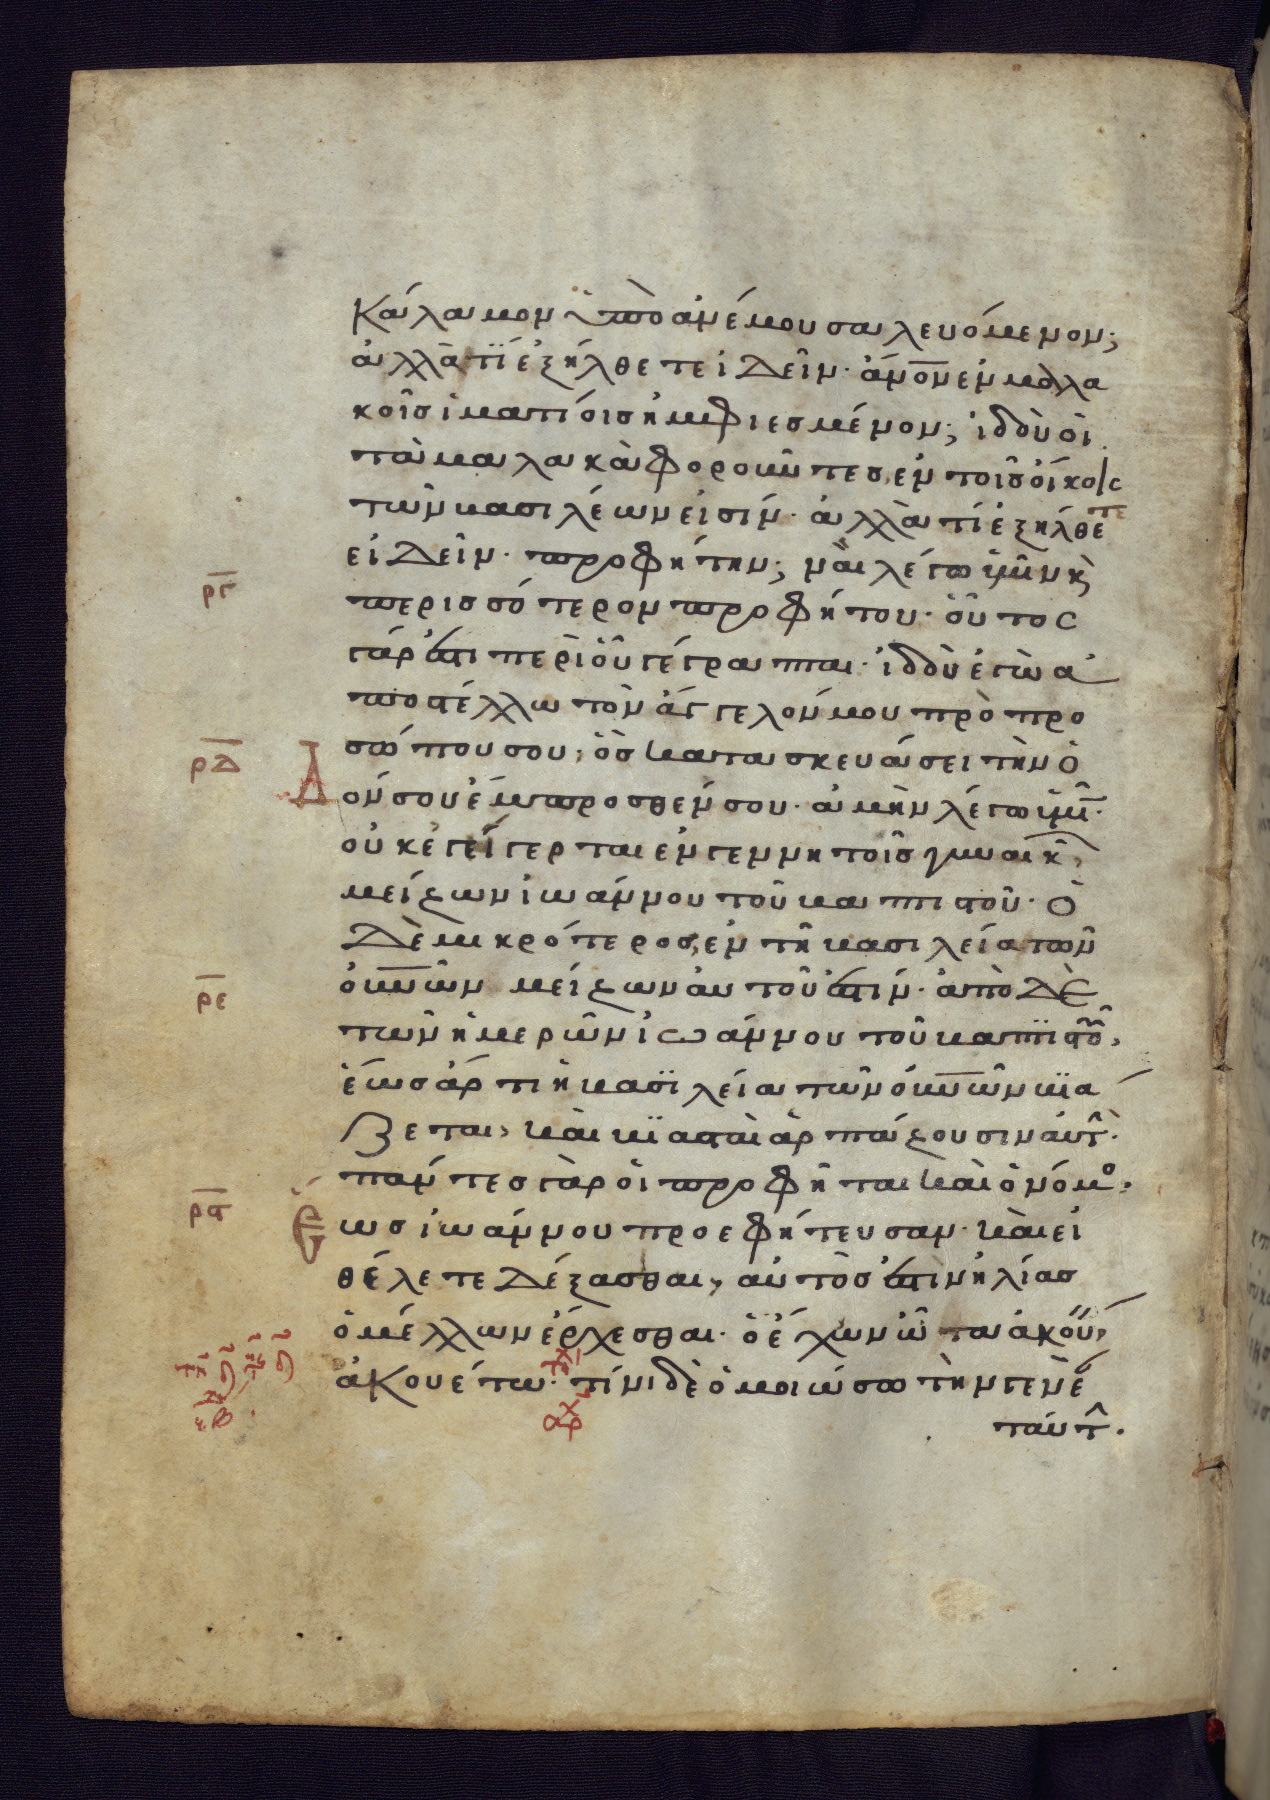 κάλαμον ὑπὸ ἀνέμου σαλευόμενον;
ἀλλὰ τί ἐξήλθετε ἰδεῖν· ἄν̅ον̅ ἐν μαλα
κοῖς ἱματίοις ἠμφιεσμένον; ἰδοὺ οἱ
τὰ μαλακὰ φοροῦντες, ἐν τοῖς οἴκοις
τῶν βασιλέων εἰσίν· ἀλλὰ τί ἐξήλθετε
ἰδεῖν· προφήτην; ναὶ λέγω ὑμῖν κ̀
ργ̅ περισσότερον προφήτου· οὗτος
γάρ ἐστι περὶ οὗ γέγραπται· ἰδοὺ ἐγὼ ἀ
ποστέλλω τὸν ἄγγελόν μου πρὸ προ
ρδ̅ σώπου σου, ὃς κατασκευάσει τὴν ὁ
Δόν σου ἔμπροσθέν σου· ἀμὴν λέγω ὑμῖ̅·
οὐκ ἐγείγερται ἐν γεννητοῖς γυναικῶ̅,
μείζων ἰωάννου τοῦ βαπτιστοῦ· ὁ
δὲ μικρότερος, ἐν τῆ βασιλεία τῶν
ρε̅ οὐν̅ῶν μείζων αὐτοῦ ἐστίν· ἀπὸ δὲ
τῶν ἡμερῶν ἰωάννου τοῦ βαπτιστοῦ,
ἕως ἄρτι ἡ βασιλεία τῶν οὐν̅ῶν βιά
ζεται, καὶ βιασταὶ ἁρπάζουσιν αὐτ̑·
πάντες γὰρ οἱ προφῆται καὶ ὁ νόμο,
ρϛ̅ Ἕως ἰωάννου προεφήτευσαν· καὶ εἰ
θέλετε δέξασθαι, αὐτός ἐστιν ἠλίας
ὁ μέλλων ἔρχεσθαι· ὁ ἔχων ὦτα ἀκού,
ἀκουέτω· τίνι δὲ ὁμοιώσω τὴν γενε
αρχ
ταύτ̑.